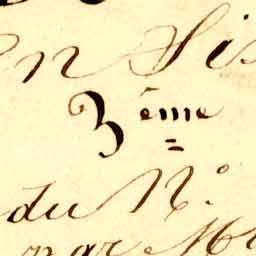 en Sis
3ème
du N°
par Me